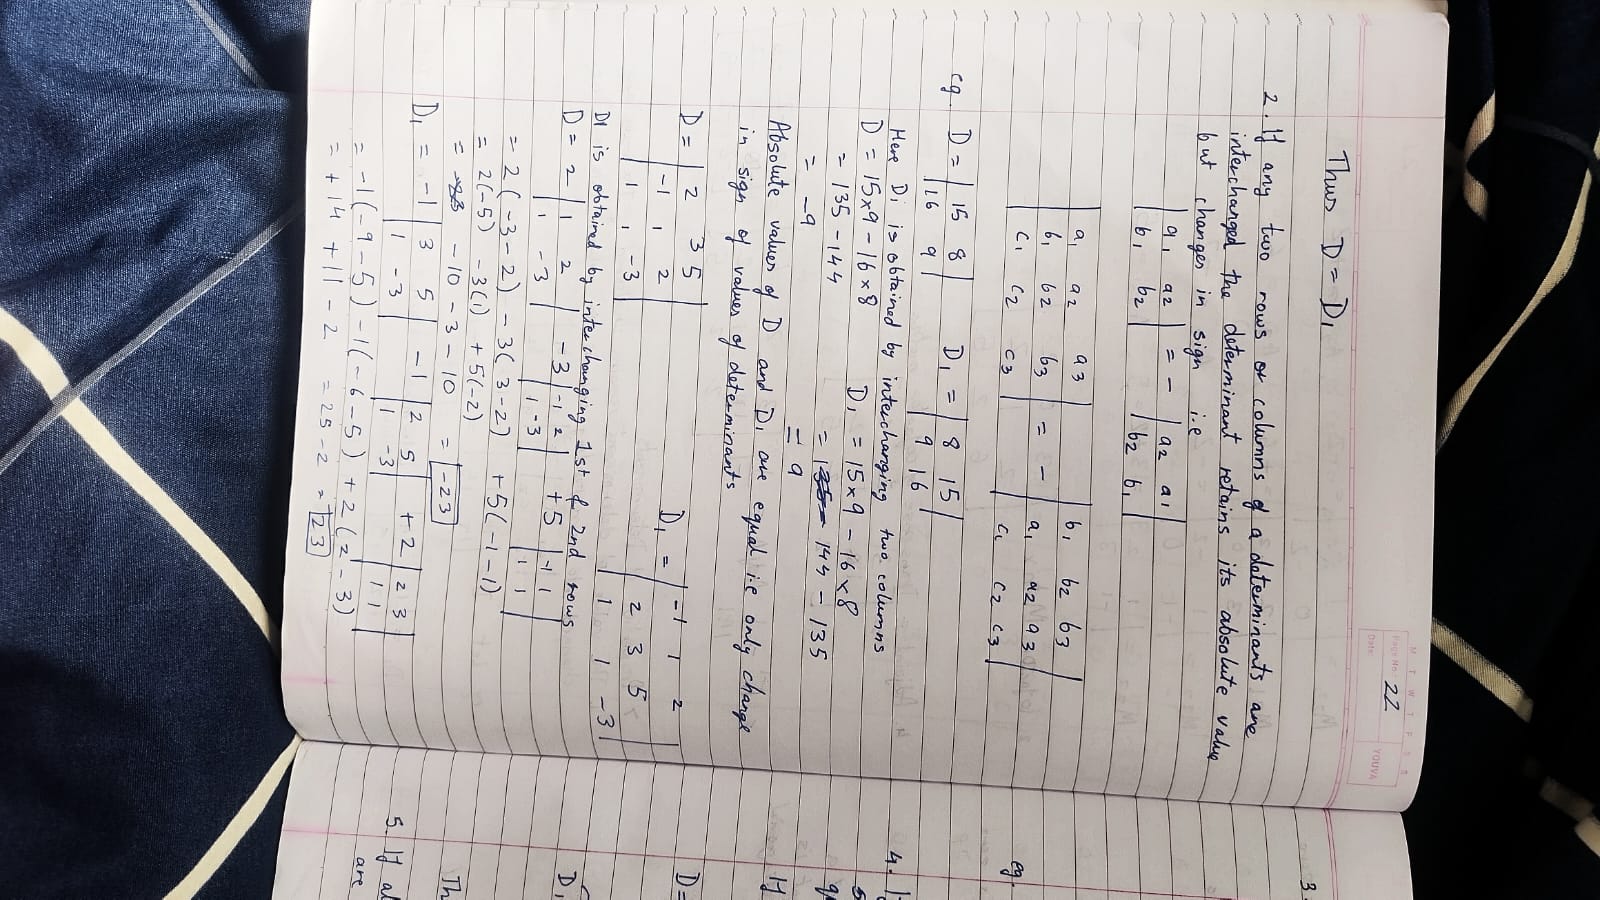 M T W T F S S
Page No.: 22
YOUVA
Date:
Thus D = D1
2. If any two rows or columns of a determinants are
interchanged the determinant retains its absolute value
but changes in sign i.e
| a1 a2 | = - | a2 a1 |
| b1 b2 | | b2 b1 |
| a1 a2 a3 | | b1 b2 b3 |
| b1 b2 b3 | = - | a1 a2 a3 |
| c1 c2 c3 | | c1 c2 c3 |
eg. D = | 15 8 | D1 = | 8 15 |
| 16 9 | | 9 16 |
Here D1 is obtained by interchanging two columns
D = 15×9 - 16×8 D1 = 15×9 - 16×8
= 135 - 144 = 144 - 135
= -9 = 9
Absolute values of D and D1 are equal i.e only change
in sign of values of determinants
D = | 2 3 5 | D1 = | -1 1 2 |
| -1 1 2 | | 2 3 5 |
| 1 1 -3 | | 1 1 -3 |
D1 is obtained by interchanging 1st & 2nd rows
D = 2 | 1 2 | -3 | -1 2 | +5 | -1 1 |
| 1 -3 | | 1 -3 | | 1 1 |
= 2(-3-2) - 3(3-2) +5(-1-1)
= 2(-5) -3(1) +5(-2)
= -10 - 3 - 10 = -23
D1 = -1 | 3 5 | -1 | 2 5 | +2 | 2 3 |
| 1 -3 | | 1 -3 | | 1 1 |
= -1(-9-5) -1(-6-5) +2(2-3)
= +14 +11 -2 = 25-2 = 23
3.
eg.
4.
D=
D1
Th
5. If al
are